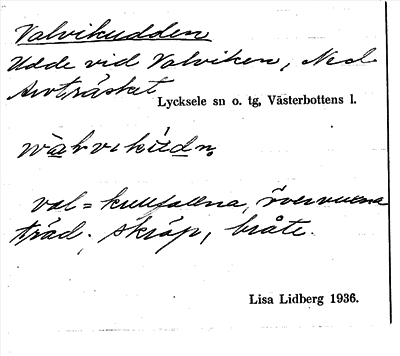 Valvikudden
Udde vid Valviken, Ned.
Avträsket
Lycksele sn o. tg, Västerbottens l.
val = kullfallna, övervuxna
träd. skräp, bråte.
Lisa Lidberg 1936.